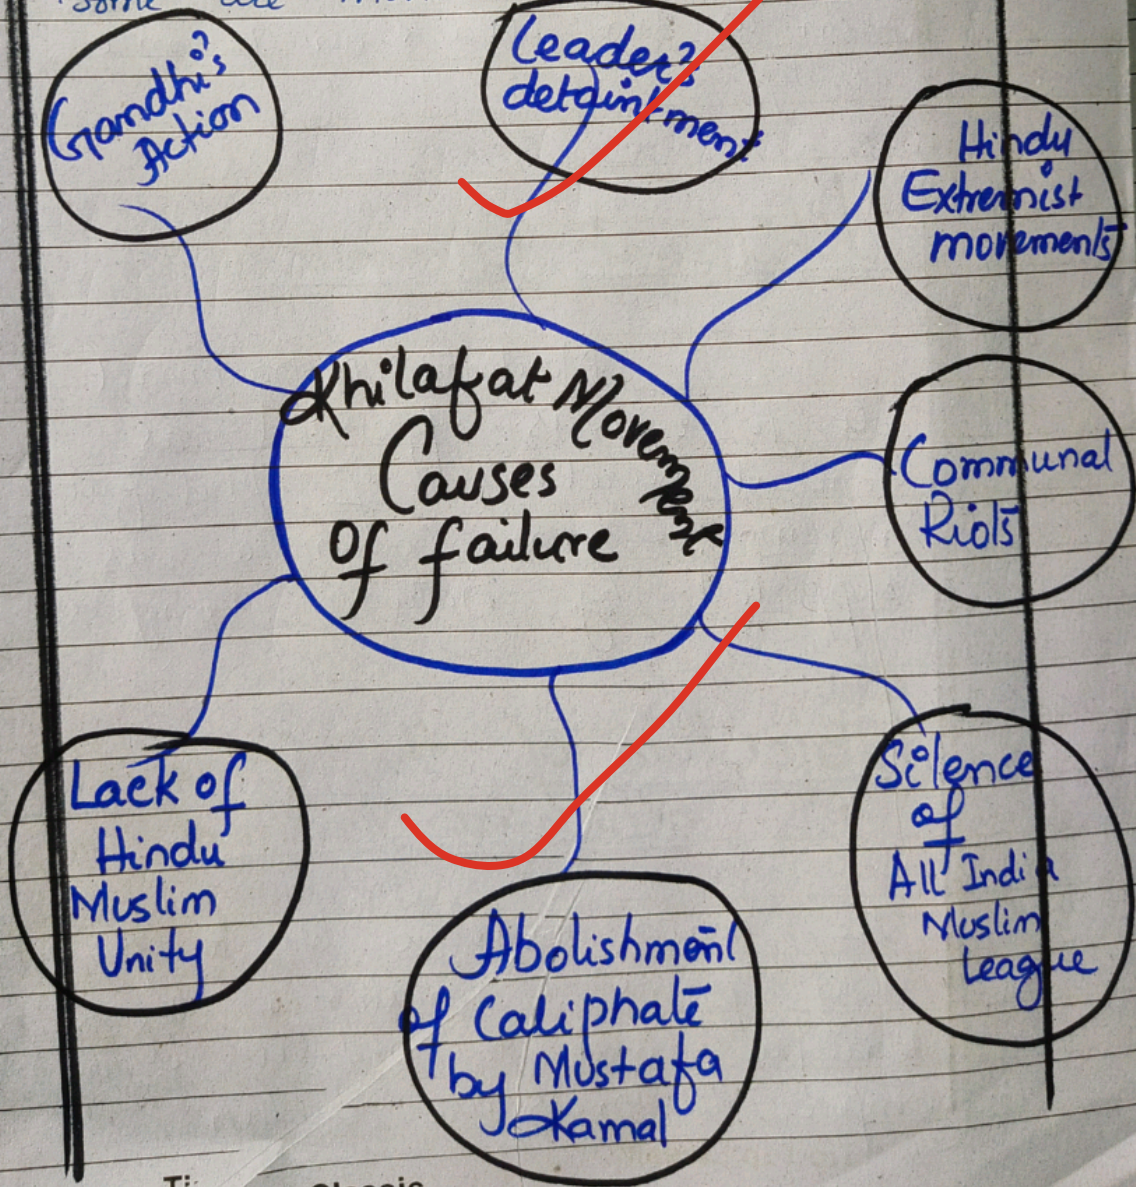 some are
Gandhi's
Action
Leader's
detaintment
Hindu
Extremist
movements
Khilafat Movement
Causes
Of failure
Communal
Riots
Lack of
Hindu
Muslim
Unity
Abolishment
of Caliphate
by Mustafa
Kamal
Silence
of
All India
Muslim
League